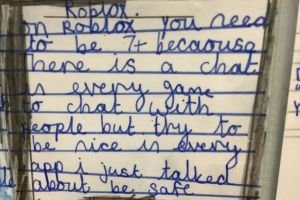 Roblox.
on Roblox you need
to be 7+ becaouse
there is a chat
is every game
to chat with
people but try to
be nice is every
app i just talked
about be safe